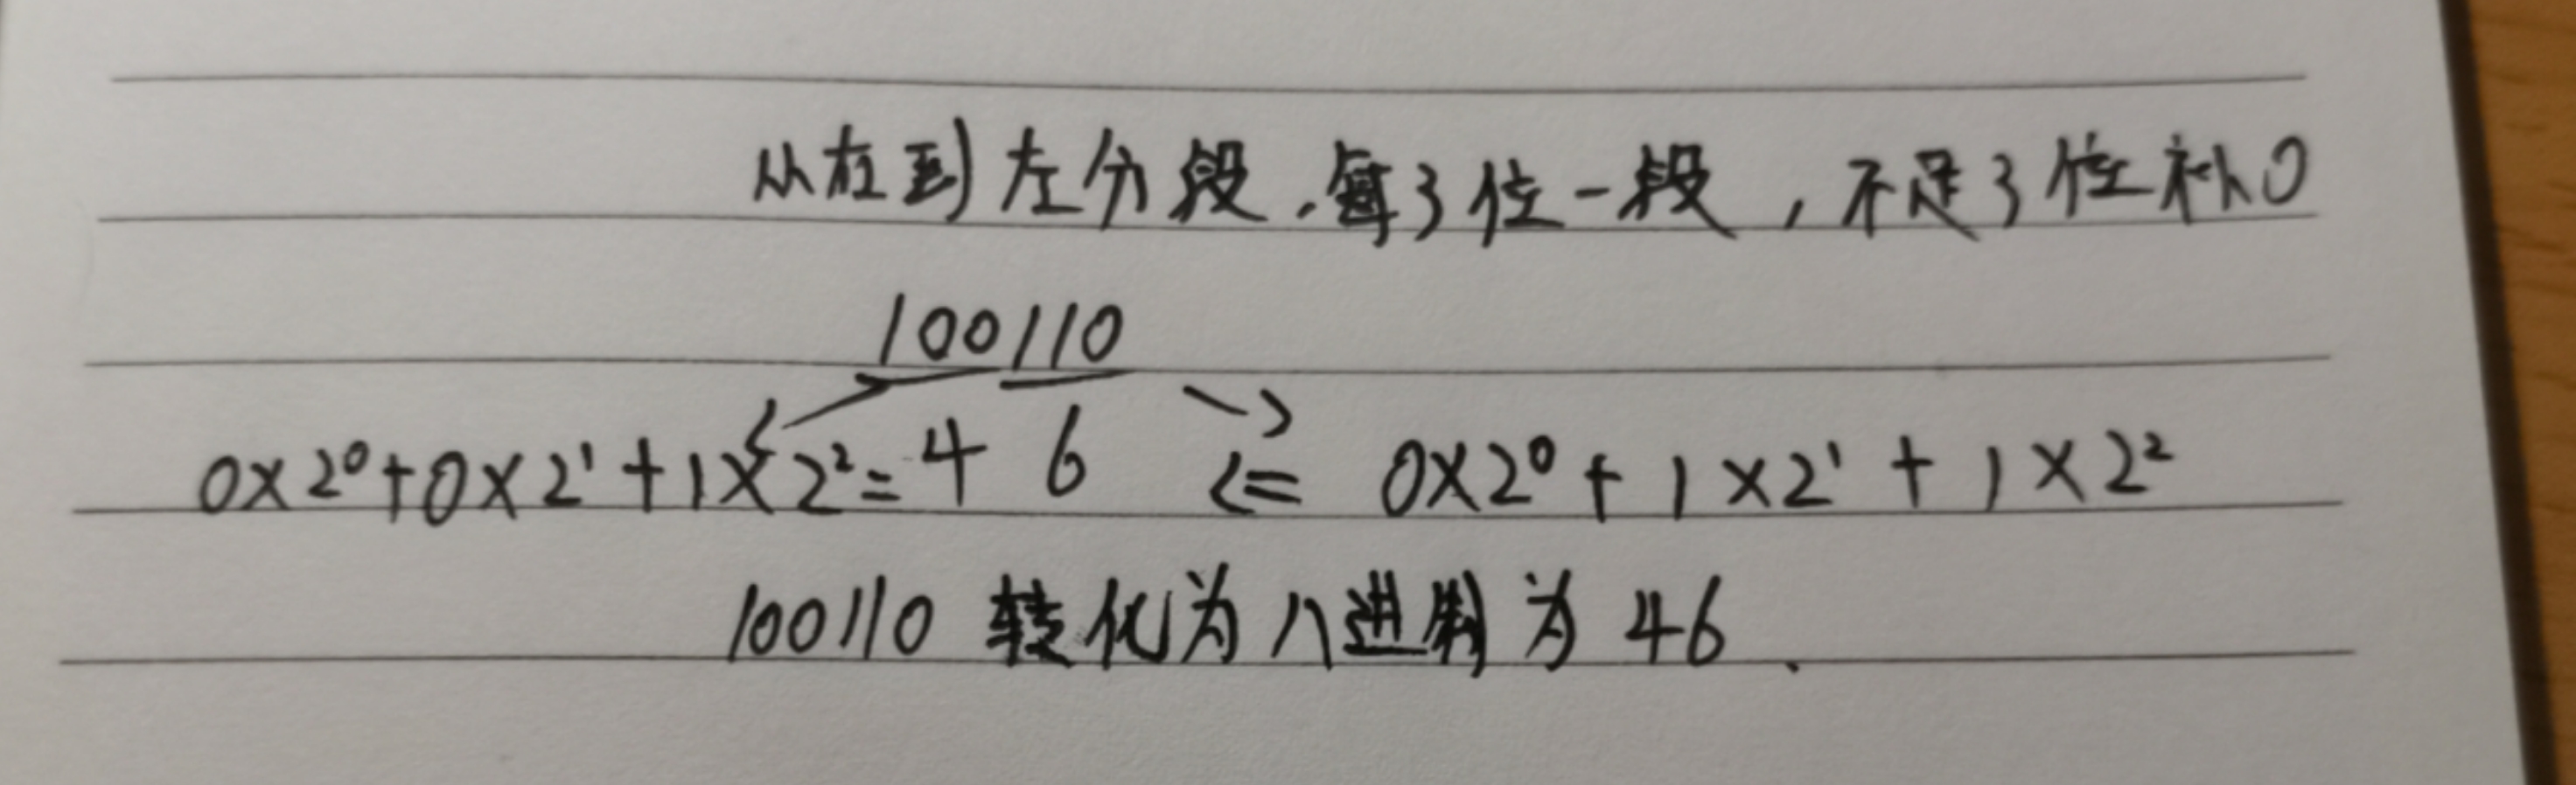 从右到左分段,每3位一段,不足3位补0
100110
0×2⁰+0×2¹+1×2²=4 6 <= 0×2⁰+1×2¹+1×2²
100110 转化为八进制为 46.